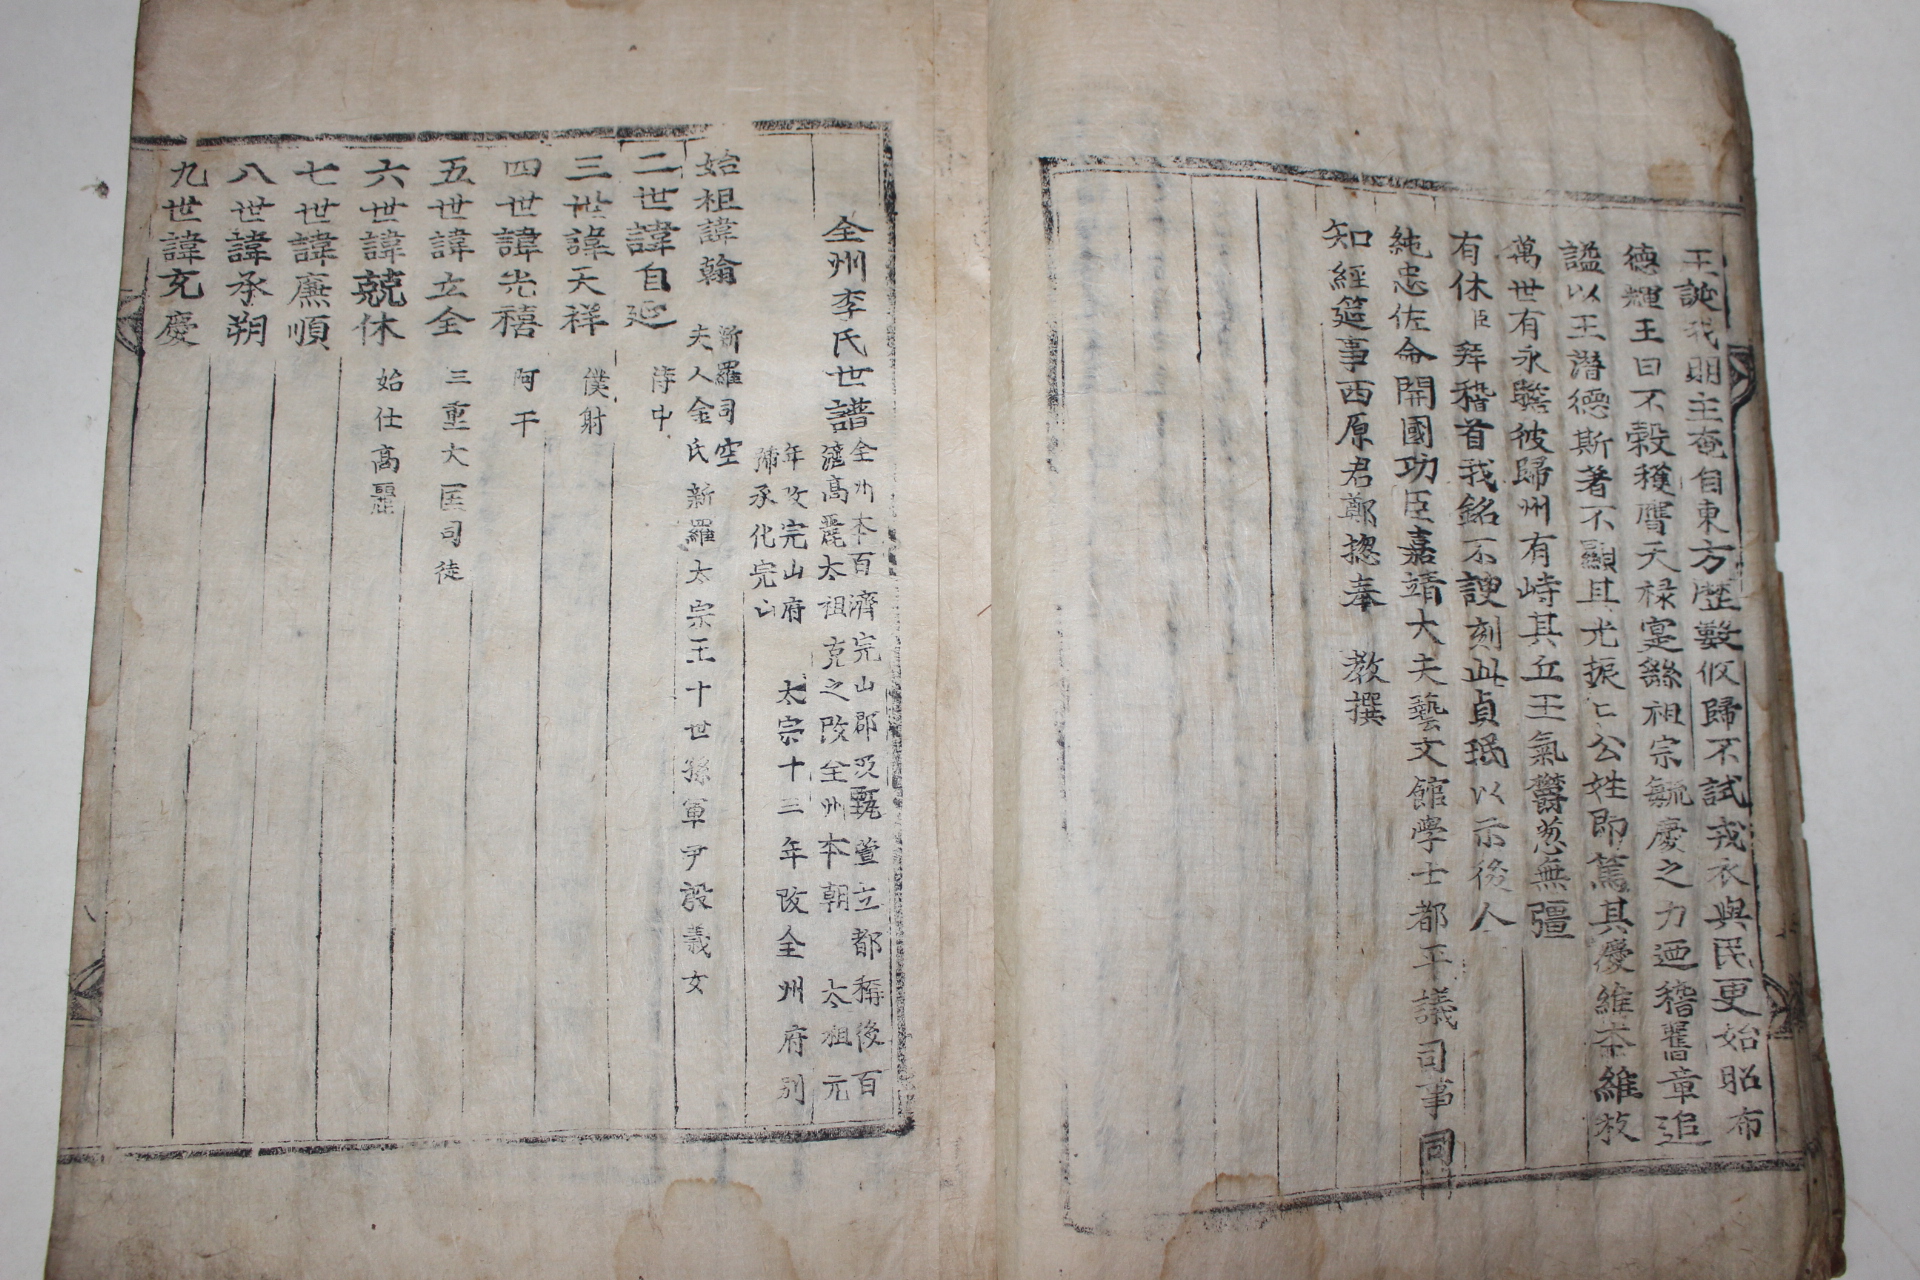 王誕我明主奄自東方歷數攸歸不試戎衣與民更始昭布
德輝王曰不穀穫膺天祿寔繇祖宗毓慶之力迺稽舊章追
謚以王潛德斯著不顯其光振〻公姓卽篤其慶維本維枝
萬世有永緊彼歸州有峙其丘王氣鬱葱無彊
有休臣拜稽首我銘不諛刻此貞珉以示後人
純忠佐命開國功臣嘉靖大夫藝文館學士都平議司事同
知經筵事西原君鄭摠奉 教撰
全州李氏世譜
全州本百濟完山郡及甄萱立都稱後百
濟高麗太祖克之改全州本朝 太祖元
年改完山府 太宗十三年改全州府別
稱承化完山
始祖諱翰 新羅司空
夫人金氏新羅太宗王十世孫軍尹殷義女
二世諱自延 侍中
三世諱天祥 僕射
四世諱光禧 阿干
五世諱立全 三重大匡司徒
六世諱兢休 始仕高麗
七世諱廉順
八世諱承朔
九世諱充慶